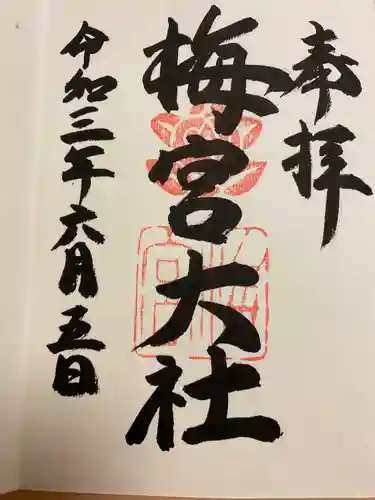 奉拝
梅宮大社
令和三年六月五日